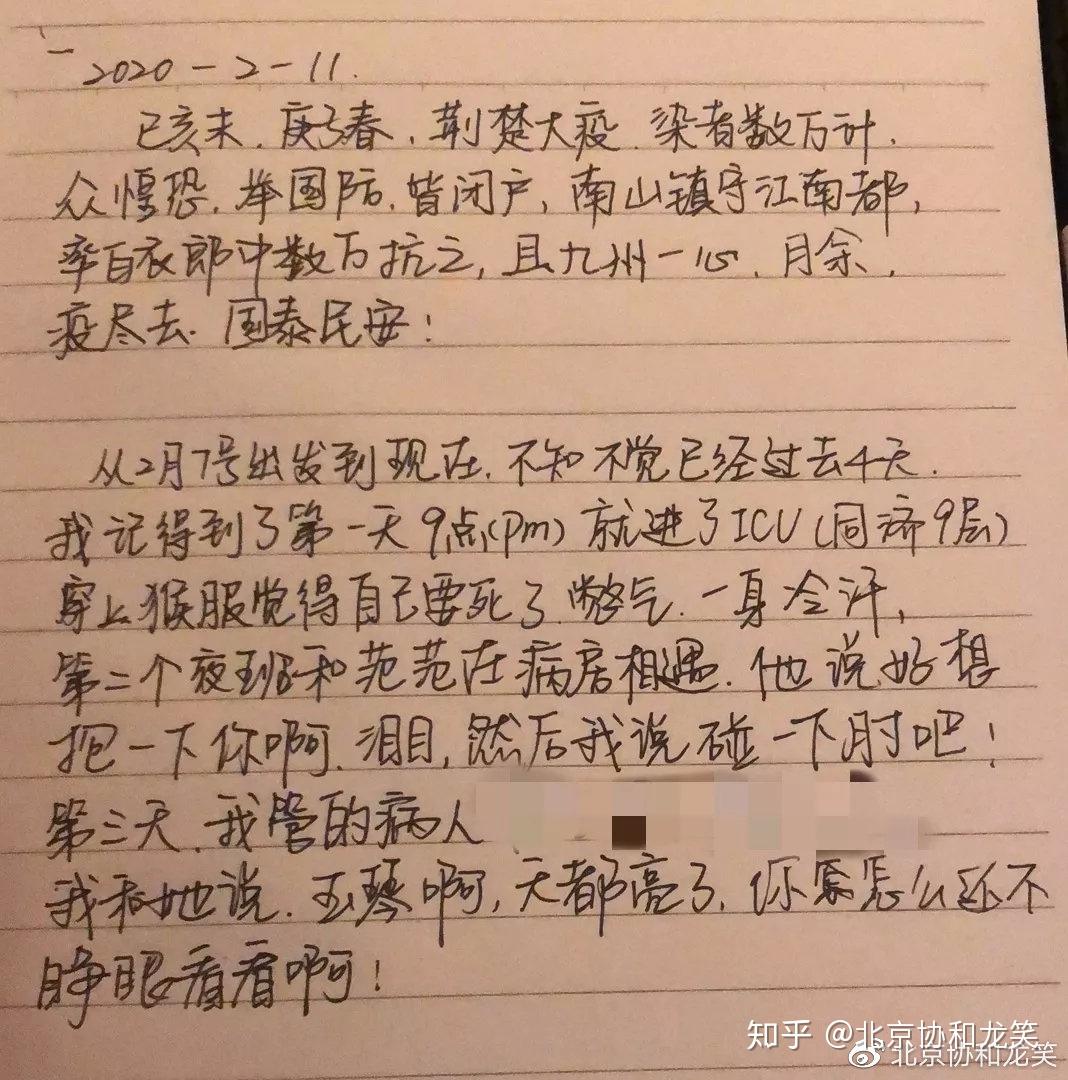 2020-2-11.
己亥末,庚子春,荆楚大疫,染者数万计,
众惶恐,举国防,皆闭户,南山镇守江南都,
率白衣郎中数万抗之,且九州一心,月余,
疫尽去,国泰民安!
从2月7号出发到现在,不知不觉已经过去4天.
我记得到了第一天9点(pm)就进了ICU(同济9层)
穿上猴服觉得自己要死了,憋气,一身冷汗,
第二个夜班和范范在病房相遇,他说好想
抱一下你啊,泪目,然后我说碰一下肘吧!
第三天,我管的病人
我和她说,玉琴啊,天都亮了,你怎么还不
睁眼看看啊!
知乎 @北京协和龙笑
@北京协和龙笑